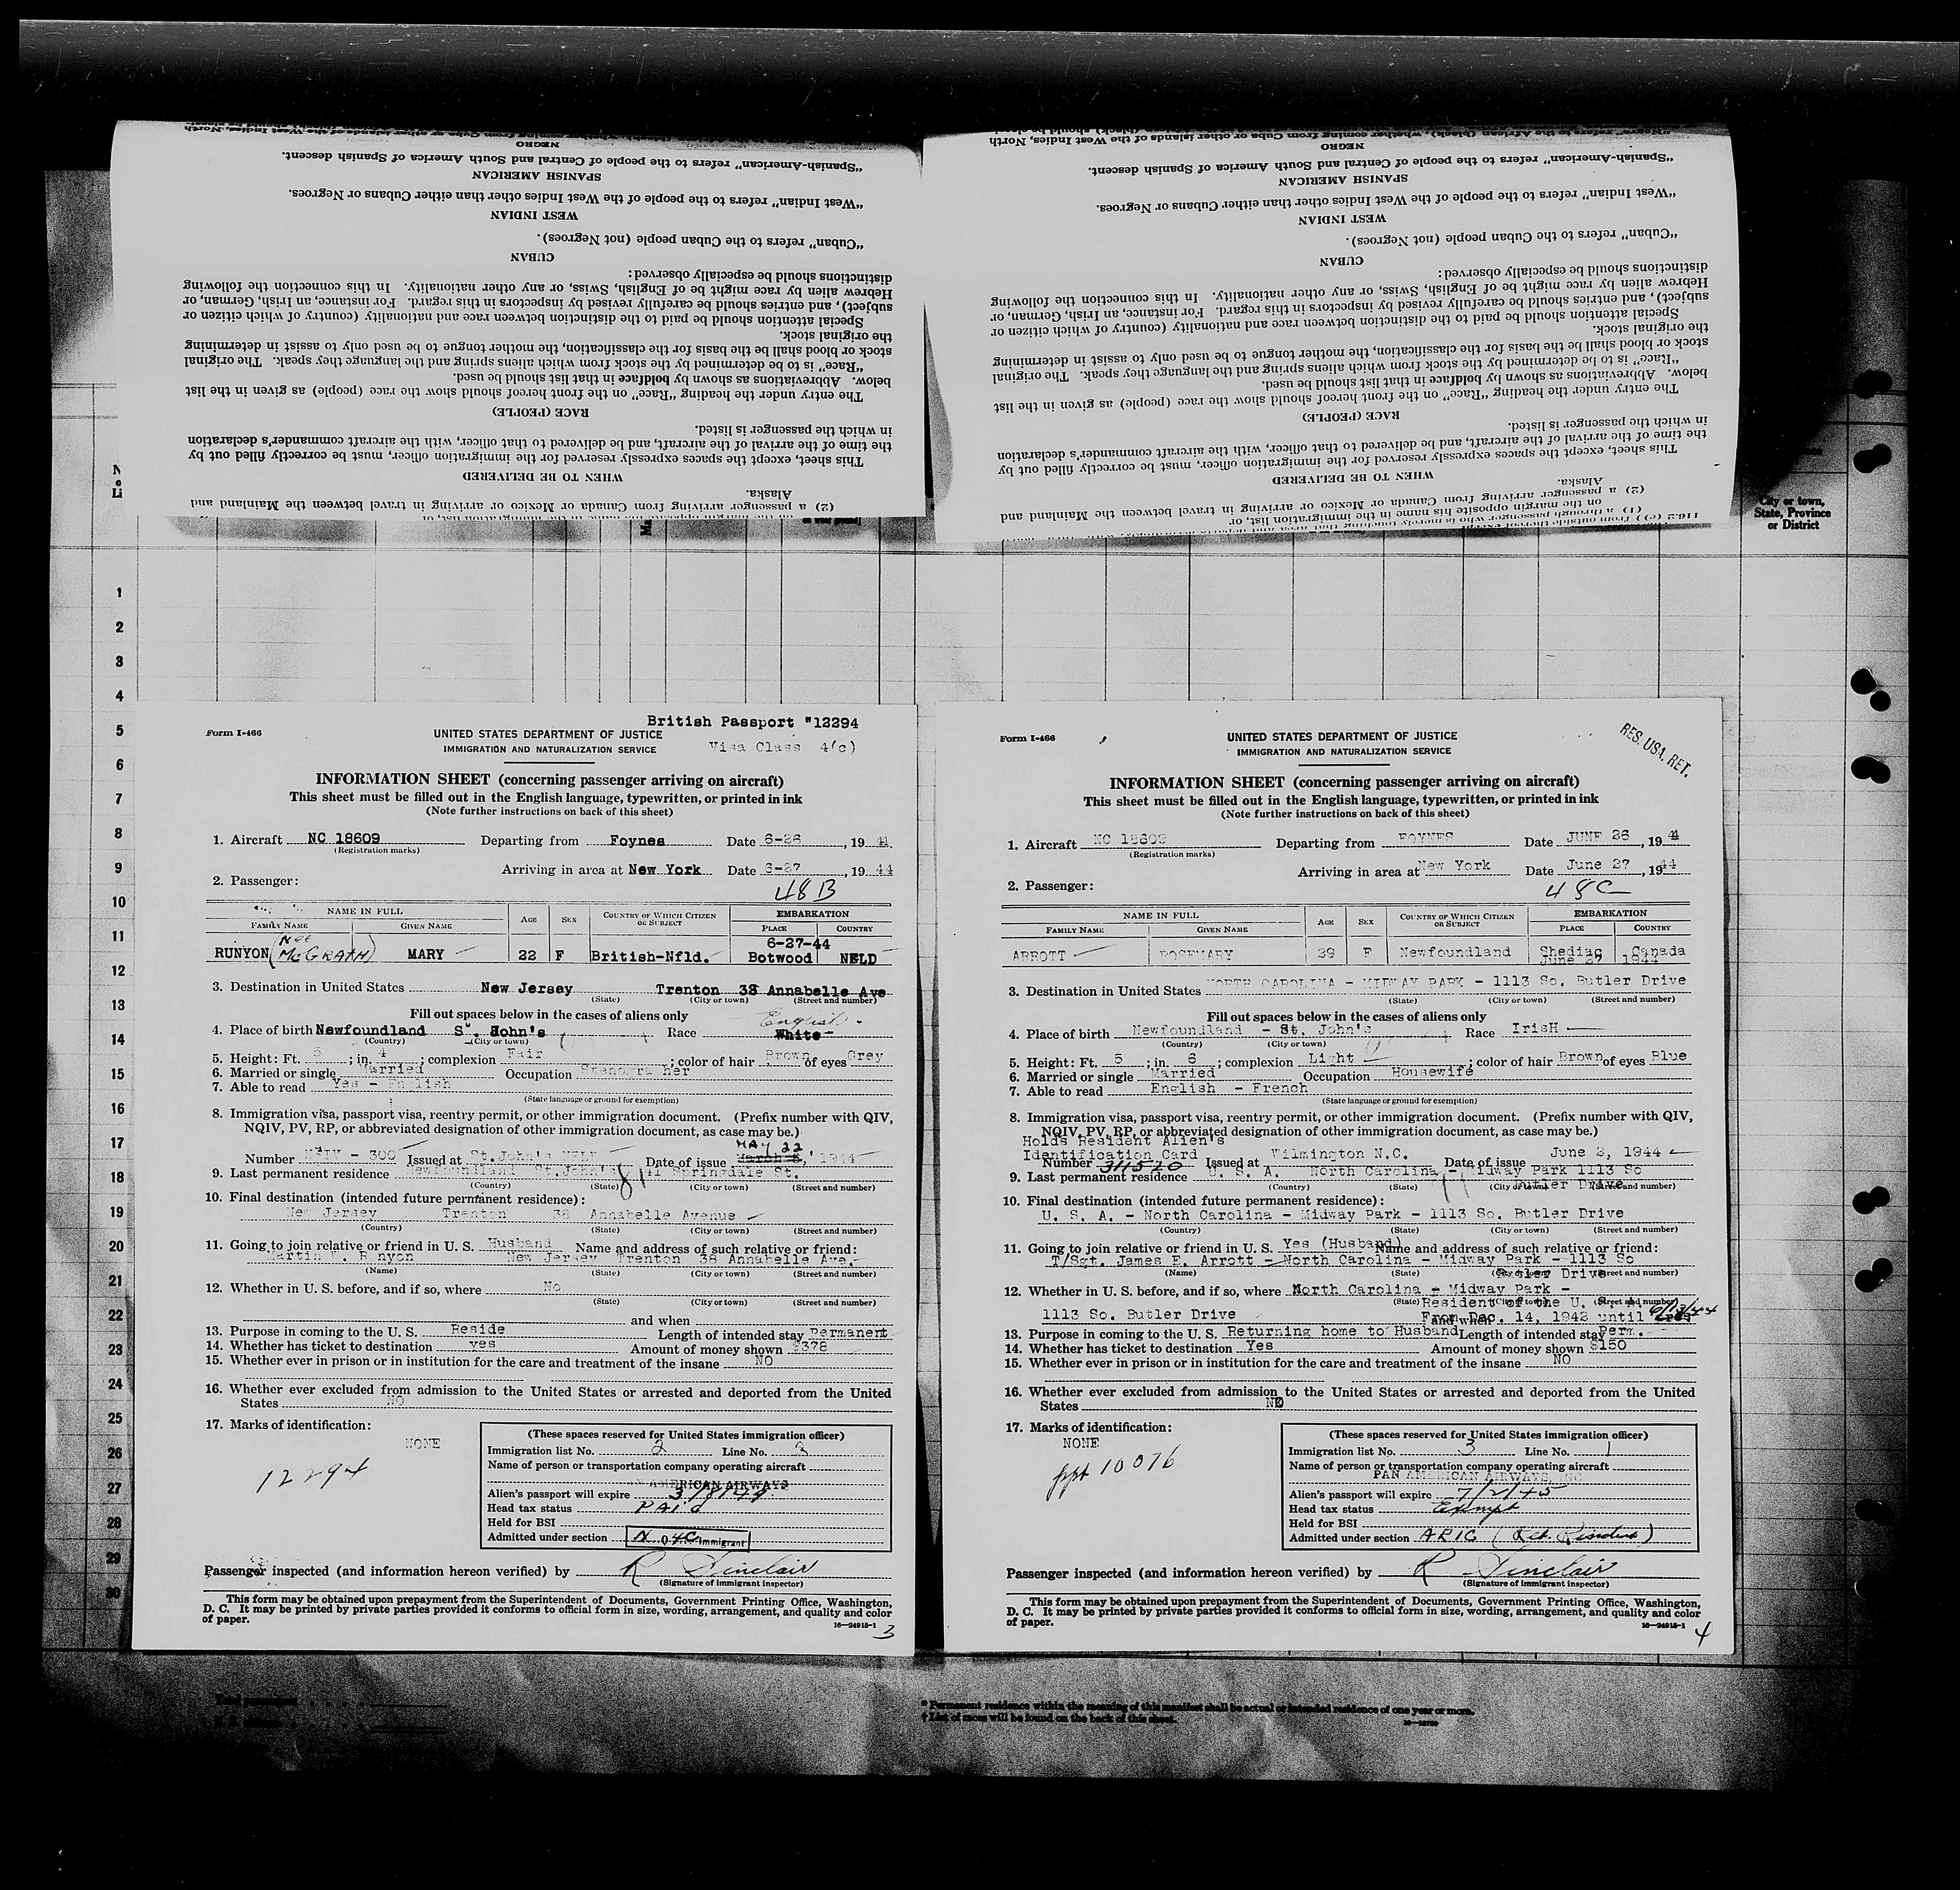 "Negro" refers to the African (black), whether coming from Cuba or other islands of the West Indies, North
NEGRO
"Spanish-American" refers to the people of Central and South America of Spanish descent.
SPANISH AMERICAN
"West Indian" refers to the people of the West Indies other than either Cubans or Negroes.
WEST INDIAN
"Cuban" refers to the Cuban people (not Negroes).
CUBAN
distinctions should be especially observed:
Hebrew alien by race might be of English, Swiss, or any other nationality. In this connection the following
subject), and entries should be carefully revised by inspectors in this regard. For instance, an Irish, German, or
Special attention should be paid to the distinction between race and nationality (country of which citizen or
the original stock.
stock or blood shall be the basis for the classification, the mother tongue to be used only to assist in determining
"Race" is to be determined by the stock from which aliens spring and the language they speak. The original
below. Abbreviations as shown by boldface in that list should be used.
The entry under the heading "Race" on the front hereof should show the race (people) as given in the list
RACE (PEOPLE)
in which the passenger is listed.
the time of the arrival of the aircraft, and be delivered to that officer, with the aircraft commander's declaration
This sheet, except the spaces expressly reserved for the immigration officer, must be correctly filled out by
WHEN TO BE DELIVERED
Alaska.
(2) a passenger arriving from Canada or Mexico or arriving in travel between the Mainland and
"Negro" refers to the African (black), whether coming from Cuba or other islands of the West Indies, North
NEGRO
"Spanish-American" refers to the people of Central and South America of Spanish descent.
SPANISH AMERICAN
"West Indian" refers to the people of the West Indies other than either Cubans or Negroes.
WEST INDIAN
"Cuban" refers to the Cuban people (not Negroes).
CUBAN
distinctions should be especially observed:
Hebrew alien by race might be of English, Swiss, or any other nationality. In this connection the following
subject), and entries should be carefully revised by inspectors in this regard. For instance, an Irish, German, or
Special attention should be paid to the distinction between race and nationality (country of which citizen or
the original stock.
stock or blood shall be the basis for the classification, the mother tongue to be used only to assist in determining
"Race" is to be determined by the stock from which aliens spring and the language they speak. The original
below. Abbreviations as shown by boldface in that list should be used.
The entry under the heading "Race" on the front hereof should show the race (people) as given in the list
RACE (PEOPLE)
in which the passenger is listed.
the time of the arrival of the aircraft, and be delivered to that officer, with the aircraft commander's declaration
This sheet, except the spaces expressly reserved for the immigration officer, must be correctly filled out by
WHEN TO BE DELIVERED
Alaska.
(2) a passenger arriving from Canada or Mexico or arriving in travel between the Mainland and
on the margin opposite his name in the immigration list, or
(1) a through passenger who is merely touching
City or town,
State, Province
or District
1
2
3
4
5
6
7
8
9
10
11
12
13
14
15
16
17
18
19
20
21
22
23
24
25
26
27
28
29
30
British Passport #12294
Form I-466
UNITED STATES DEPARTMENT OF JUSTICE
IMMIGRATION AND NATURALIZATION SERVICE
Visa Class 4(c)
INFORMATION SHEET (concerning passenger arriving on aircraft)
This sheet must be filled out in the English language, typewritten, or printed in ink
(Note further instructions on back of this sheet)
1. Aircraft NC 18609 Departing from Foynes Date 6-26, 1944
(Registration marks)
Arriving in area at New York Date 6-27, 1944
2. Passenger: 48B
NAME IN FULL AGE SEX COUNTRY OF WHICH CITIZEN OR SUBJECT EMBARKATION
FAMILY NAME GIVEN NAME PLACE COUNTRY
6-27-44
RUNYON (Nee McGRATH) MARY 22 F British-Nfld. Botwood NFLD
3. Destination in United States New Jersey Trenton 38 Annabelle Ave
(State) (City or town) (Street and number)
Fill out spaces below in the cases of aliens only
English
4. Place of birth Newfoundland St. John's Race White
(Country) (City or town)
5. Height: Ft. 5; in. 4; complexion Fair; color of hair Brown of eyes Grey
6. Married or single Married Occupation Stenographer
7. Able to read Yes - English
(State language or ground for exemption)
8. Immigration visa, passport visa, reentry permit, or other immigration document. (Prefix number with QIV,
NQIV, PV, RP, or abbreviated designation of other immigration document, as case may be.)
MAY 22
Number NQIV - 300 Issued at St.John's NFLD Date of issue March 8, 1944
9. Last permanent residence Newfoundland St.John's 41 Springdale St.
(Country) (State) (City or town) (Street and number)
10. Final destination (intended future permanent residence):
New Jersey Trenton 38 Annabelle Avenue
(Country) (State) (City or town) (Street and number)
11. Going to join relative or friend in U. S. Husband Name and address of such relative or friend:
Martin W. Runyon New Jersey Trenton 38 Annabelle Ave.
(Name) (State) (City or town) (Street and number)
12. Whether in U. S. before, and if so, where No
(State) (City or town) (Street and number)
and when
13. Purpose in coming to the U. S. Reside Length of intended stay Permanent
14. Whether has ticket to destination yes Amount of money shown $378
15. Whether ever in prison or in institution for the care and treatment of the insane NO
16. Whether ever excluded from admission to the United States or arrested and deported from the United
States NO
17. Marks of identification:
NONE
12294
(These spaces reserved for United States immigration officer)
Immigration list No. 2 Line No. 2
Name of person or transportation company operating aircraft
AMERICAN AIRWAYS
Alien's passport will expire 3/8/49
Head tax status PAID
Held for BSI
Admitted under section N. O. 4C Immigrant
Passenger inspected (and information hereon verified) by R Sinclair
(Signature of immigrant inspector)
This form may be obtained upon prepayment from the Superintendent of Documents, Government Printing Office, Washington,
D. C. It may be printed by private parties provided it conforms to official form in size, wording, arrangement, and quality and color
of paper.
16—24915-1
3
Form I-466
UNITED STATES DEPARTMENT OF JUSTICE
IMMIGRATION AND NATURALIZATION SERVICE
RES. USA. RET.
INFORMATION SHEET (concerning passenger arriving on aircraft)
This sheet must be filled out in the English language, typewritten, or printed in ink
(Note further instructions on back of this sheet)
1. Aircraft NC 18609 Departing from FOYNES Date JUNE 26, 1944
(Registration marks)
Arriving in area at New York Date June 27, 1944
2. Passenger: 48C
NAME IN FULL AGE SEX COUNTRY OF WHICH CITIZEN OR SUBJECT EMBARKATION
FAMILY NAME GIVEN NAME PLACE COUNTRY
ARROTT ROSEMARY 29 F Newfoundland Shediac Canada
June 27 1944
3. Destination in United States NORTH CAROLINA - MIDWAY PARK - 1113 So. Butler Drive
(State) (City or town) (Street and number)
Fill out spaces below in the cases of aliens only
4. Place of birth Newfoundland - St. John's Race IrisH
(Country) (City or town)
5. Height: Ft. 5; in. 6; complexion Light; color of hair Brown of eyes Blue
6. Married or single Married Occupation Housewife
7. Able to read English - French
(State language or ground for exemption)
8. Immigration visa, passport visa, reentry permit, or other immigration document. (Prefix number with QIV,
NQIV, PV, RP, or abbreviated designation of other immigration document, as case may be.)
Holds Resident Alien's
Identification Card
Number 311520 Issued at Wilmington N.C. Date of issue June 2, 1944
9. Last permanent residence U. S. A. North Carolina - Midway Park 1113 So
Butler Drive
(Country) (State) (City or town) (Street and number)
10. Final destination (intended future permanent residence):
U. S. A. - North Carolina - Midway Park - 1113 So. Butler Drive
(Country) (State) (City or town) (Street and number)
11. Going to join relative or friend in U. S. Yes (Husband) Name and address of such relative or friend:
T/Sgt. James E. Arrott - North Carolina - Midway Park - 1113 So
Butler Drive
(Name) (State) (City or town) (Street and number)
12. Whether in U. S. before, and if so, where North Carolina - Midway Park -
(State) (City or town) (Street and number)
Resident of the U. S. A.
1113 So. Butler Drive and when From Dec. 14, 1942 until 6/13/44
13. Purpose in coming to the U. S. Returning home to Husband Length of intended stay Perm.
14. Whether has ticket to destination Yes Amount of money shown $150
15. Whether ever in prison or in institution for the care and treatment of the insane NO
16. Whether ever excluded from admission to the United States or arrested and deported from the United
States NO
17. Marks of identification:
NONE
ppt 10076
(These spaces reserved for United States immigration officer)
Immigration list No. 3 Line No. 1
Name of person or transportation company operating aircraft
PAN AMERICAN AIRWAYS, INC
Alien's passport will expire 7/2/45
Head tax status Exempt
Held for BSI
Admitted under section ARIC (Ret. Resident)
Passenger inspected (and information hereon verified) by R Sinclair
(Signature of immigrant inspector)
This form may be obtained upon prepayment from the Superintendent of Documents, Government Printing Office, Washington,
D. C. It may be printed by private parties provided it conforms to official form in size, wording, arrangement, and quality and color
of paper.
16—24915-1
4
* Permanent residence within the meaning of this manifest shall be actual or intended residence of one year or more.
† List of races will be found on the back of this sheet.